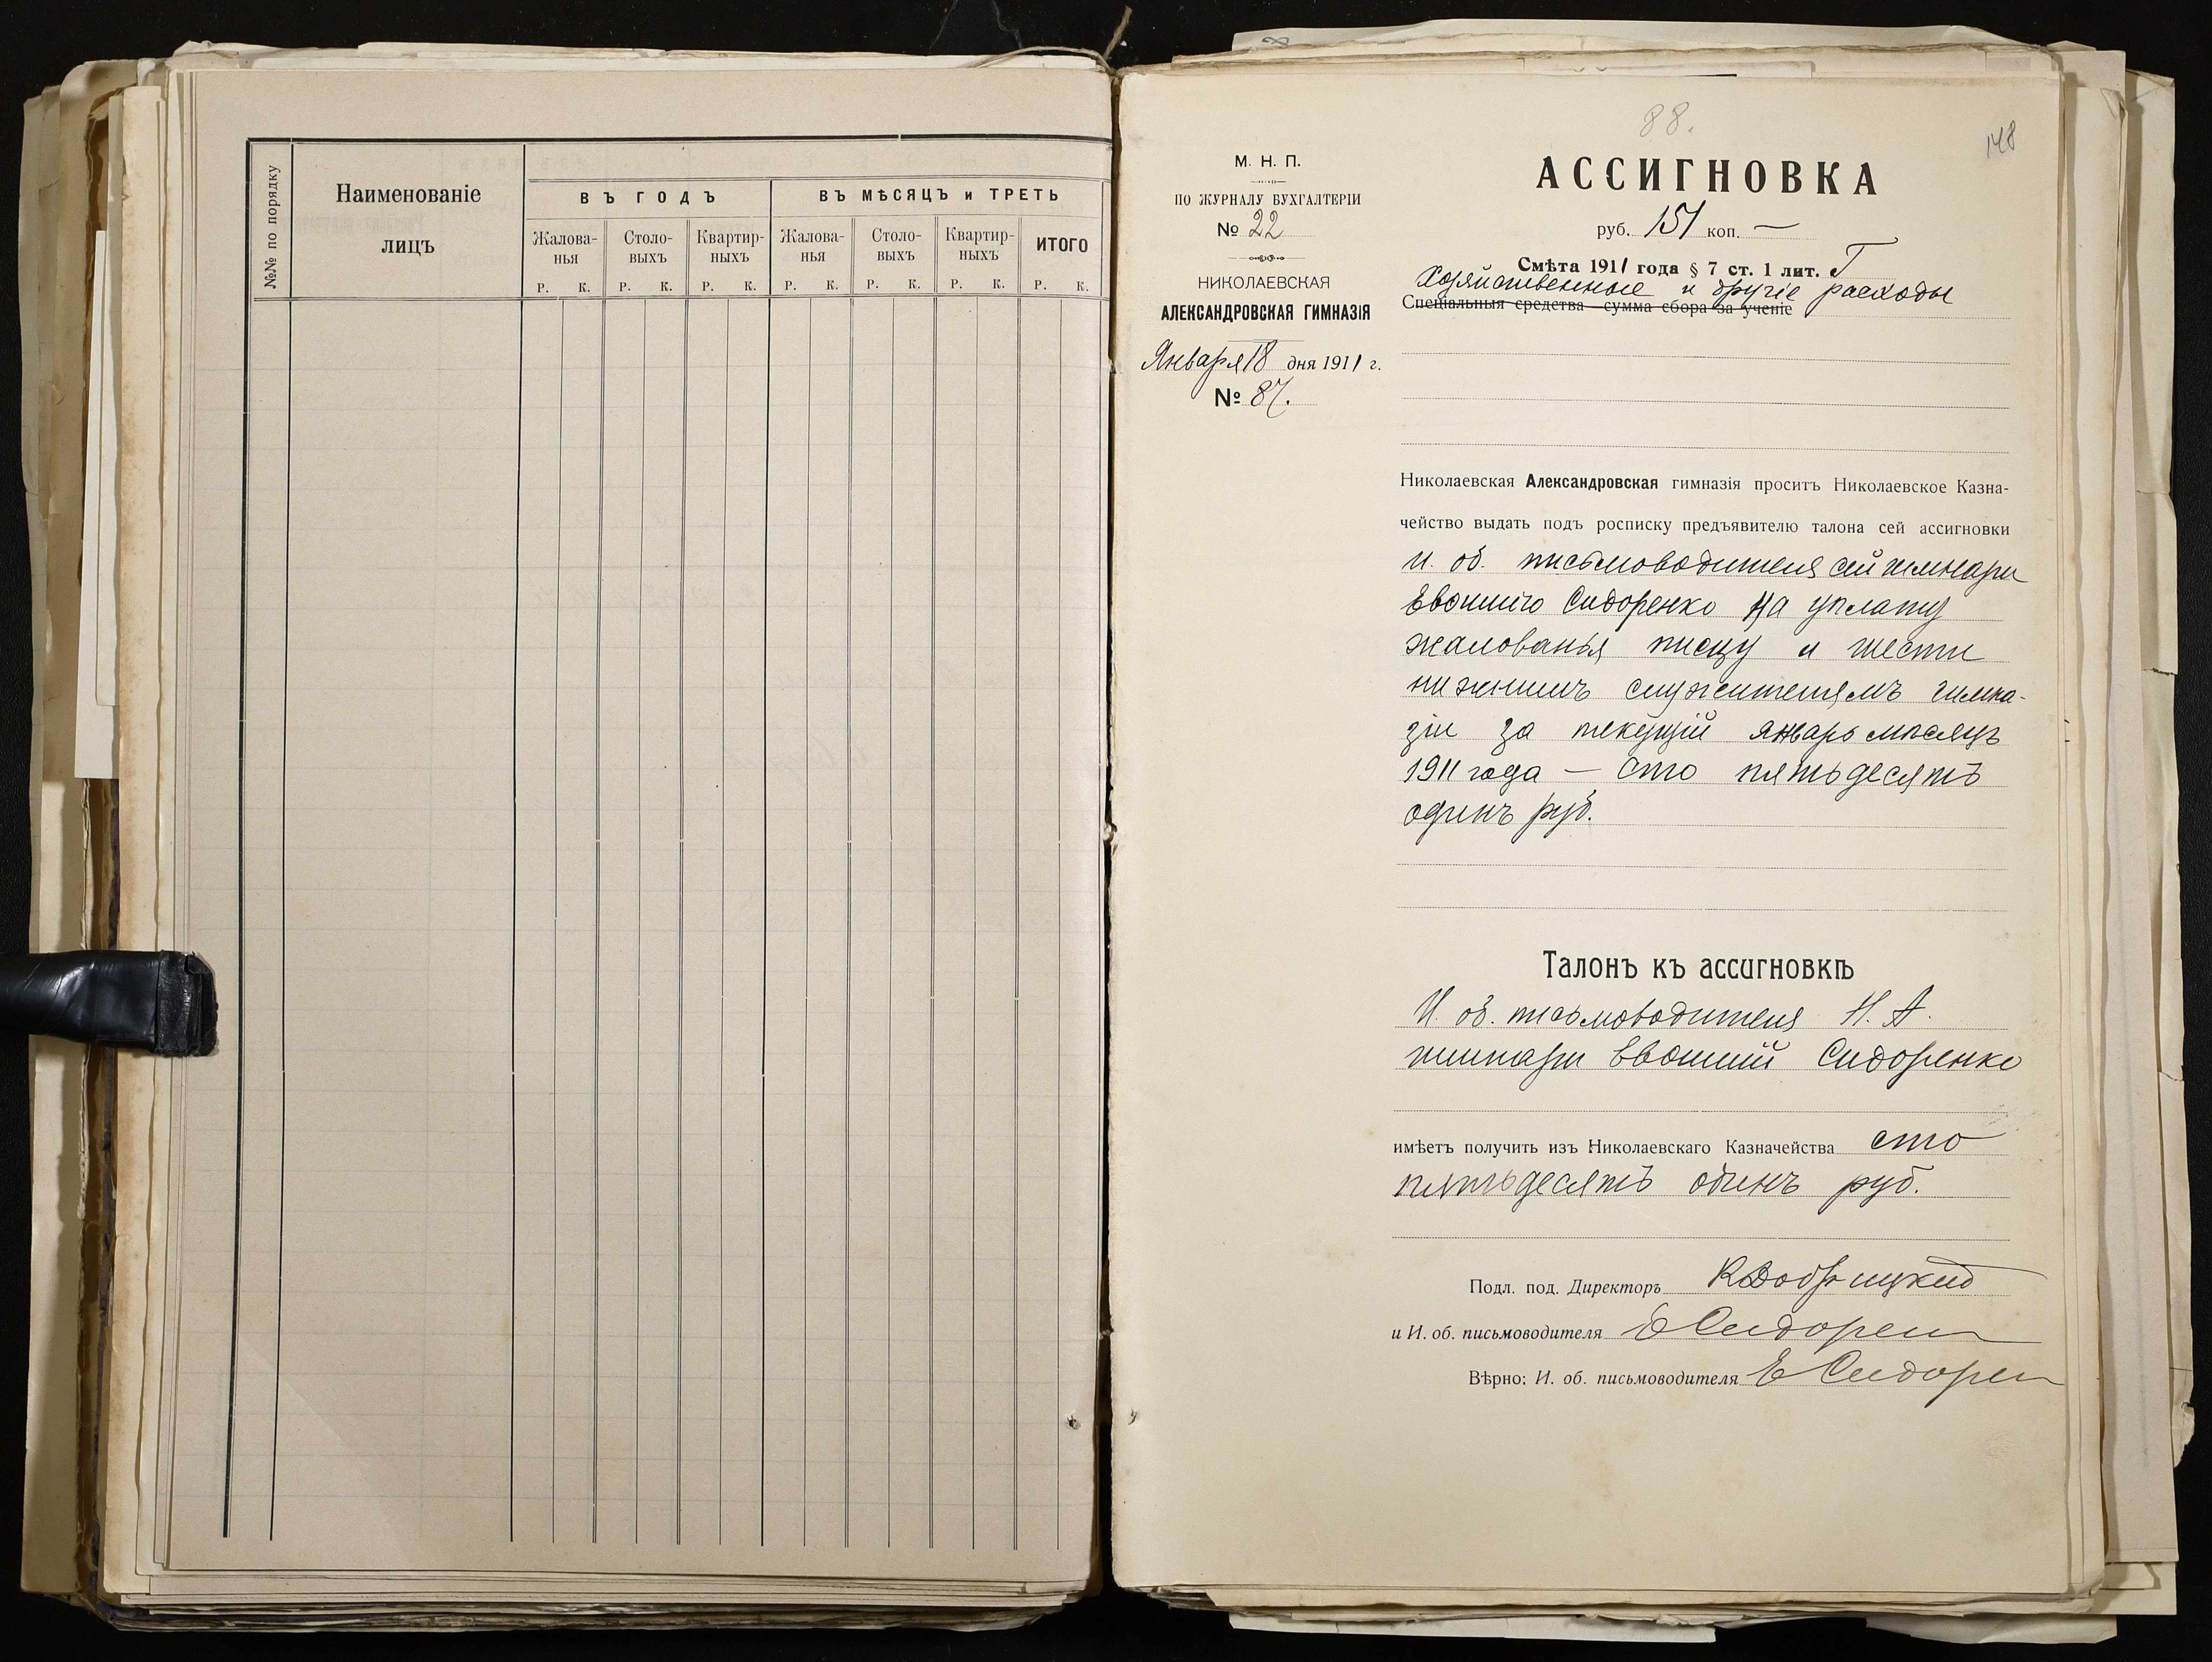 №№ по порядку
Наименованіе
лицъ
ВЪ ГОДЪ
ВЪ МѢСЯЦЪ и ТРЕТЬ
Жалова-
нья
Столо-
выхъ
Квартир-
ныхъ
Жалова-
нья
Столо-
выхъ
Квартир-
ныхъ
ИТОГО
Р. К. Р. К. Р. К. Р. К. Р. К. Р. К. Р. К.
88.
148
М. Н. П.
ПО ЖУРНАЛУ БУХГАЛТЕРІИ
№ 22
НИКОЛАЕВСКАЯ
АЛЕКСАНДРОВСКАЯ ГИМНАЗІЯ
Января 18 дня 1911 г.
№ 87.
АССИГНОВКА
руб. 151 коп. —
Смѣта 1911 года § 7 ст. 1 лит. Г
Хозяйственные и другіе расходы
Спеціальныя средства—сумма сбора за ученіе
Николаевская Александровская гимназія проситъ Николаевское Казна-
чейство выдать подъ росписку предъявителю талона сей ассигновки
и. об. письмоводителя сей
Сидоренко на уплату
жалованья писцу и шести
нижнимъ служителямъ гимна-
зіи за текущій январь мѣсяцъ
1911 года — сто пятьдесятъ
одинъ руб.
Талонъ къ ассигновкѣ
И. об. письмоводителя Н. А.
Сидоренко
имѣетъ получить изъ Николаевскаго Казначейства сто
пятьдесятъ одинъ руб.
Подл. под. Директоръ
и И. об. письмоводителя Е Сидорен
Вѣрно: И. об. письмоводителя Е Сидорен